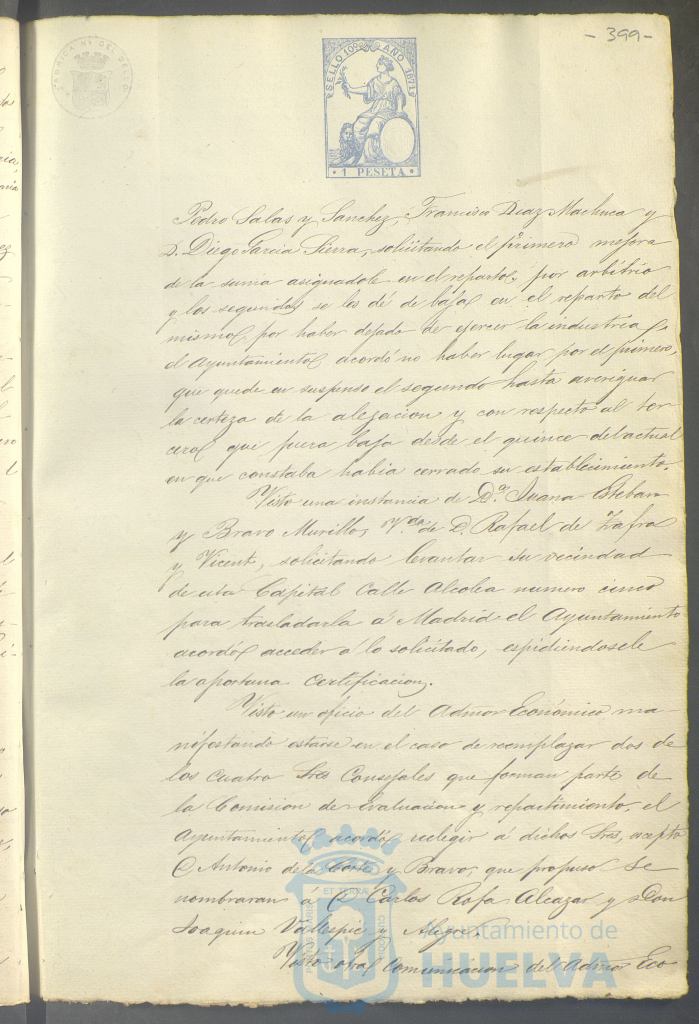 - 399 -
FABRICA NAL DEL SELLO
SELLO 10º AÑO 1871
1 PESETA
Pedro Salas y Sanchez, Francisco Diaz Machuca y
D. Diego Garcia Sierra, solicitando el primero mejora
de la suma asignadole en el reparto por arbitrio
y los segundos se les dé de baja en el reparto del
mismo por haber dejado de ejercer la industria
el Ayuntamiento acordó no haber lugar por el primero,
que quede en suspenso el segundo hasta averiguar
la certeza de la alegacion y con respecto al ter-
cero que fuera baja desde el quince del actual
en que constaba habia cerrado su establecimiento.
Visto una instancia de Dª Juana Esteban
y Bravo Murillo, Vda de D. Rafael de Zafra
y Vicent, solicitando levantar su vecindad
de esta Capital Calle Alcolea numero cinco
para trasladarla á Madrid el Ayuntamiento
acordó acceder a lo solicitado, espidiendosele
la oportuna certificacion.
Visto un oficio del Admor Económico ma-
nifestando estarse en el caso de reemplazar dos de
los cuatro Sres Consejales que forman parte de
la Comision de Evaluacion y repartimiento, el
Ayuntamiento acordó reelegir á dichos Sres, escepto
D Antonio de la Corte y Bravo, que propuso se
nombraran á D Carlos Rofa Alcazar y Don
Joaquin Vallespir y Alegre.
Visto otra comunicacion del Admor Eco
Ayuntamiento de
HUELVA